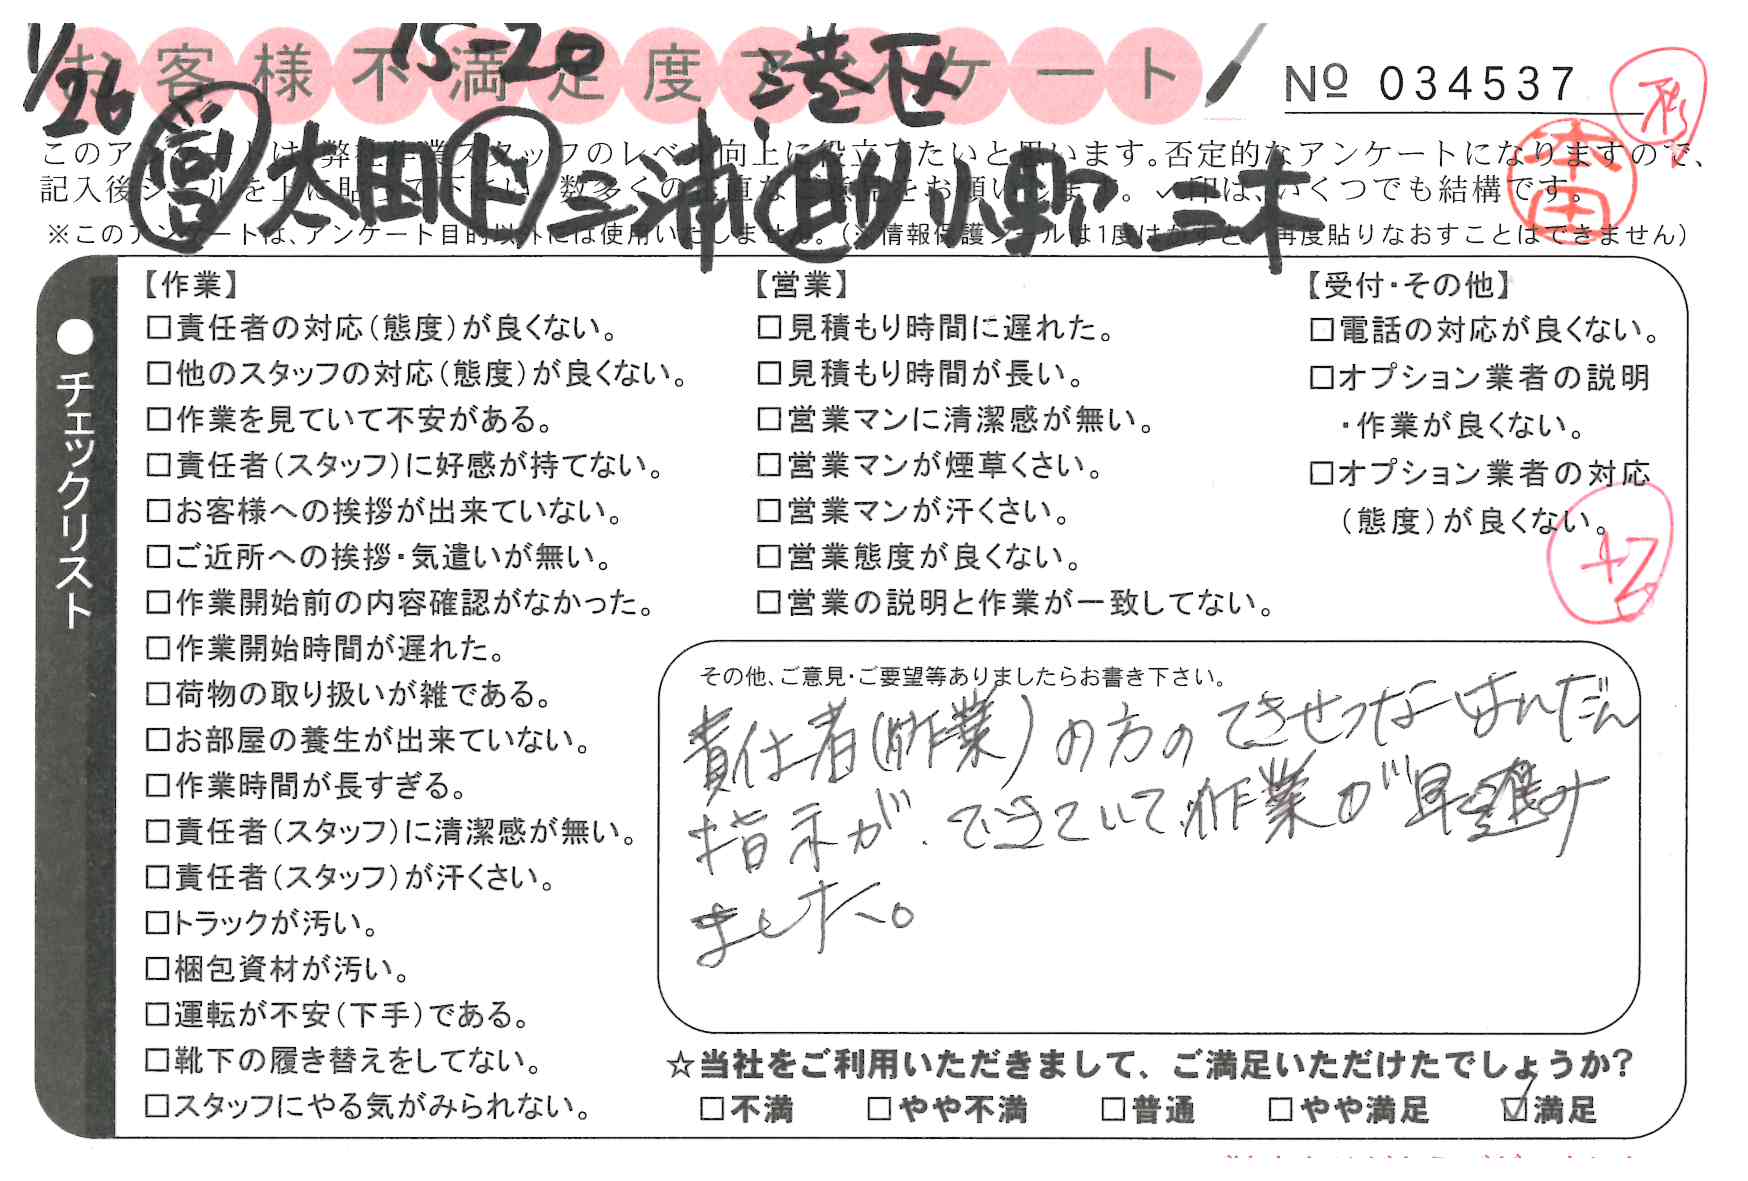 1/26 15-20 港区
お客様不満足度アンケート
№ 034537
太田 ト 三浦 助 小野、三木
このアンケートは、弊社作業スタッフのレベル向上に役立てたいと思います。否定的なアンケートになりますので、
記入後シールを上に貼って下さい。数多くの正直なご意見をお願いします。✓印は、いくつでも結構です。
※このアンケートは、アンケート目的以外には使用いたしません。(※情報保護シールは1度はがすと、再度貼りなおすことはできません)
本田
●チェックリスト
【作業】
□責任者の対応(態度)が良くない。
□他のスタッフの対応(態度)が良くない。
□作業を見ていて不安がある。
□責任者(スタッフ)に好感が持てない。
□お客様への挨拶が出来ていない。
□ご近所への挨拶・気遣いが無い。
□作業開始前の内容確認がなかった。
□作業開始時間が遅れた。
□荷物の取り扱いが雑である。
□お部屋の養生が出来ていない。
□作業時間が長すぎる。
□責任者(スタッフ)に清潔感が無い。
□責任者(スタッフ)が汗くさい。
□トラックが汚い。
□梱包資材が汚い。
□運転が不安(下手)である。
□靴下の履き替えをしてない。
□スタッフにやる気がみられない。
【営業】
□見積もり時間に遅れた。
□見積もり時間が長い。
□営業マンに清潔感が無い。
□営業マンが煙草くさい。
□営業マンが汗くさい。
□営業態度が良くない。
□営業の説明と作業が一致してない。
【受付・その他】
□電話の対応が良くない。
□オプション業者の説明
・作業が良くない。
□オプション業者の対応
(態度)が良くない。
その他、ご意見・ご要望等ありましたらお書き下さい。
責任者(作業)の方のてきせつなはんだん
指示が、できていて、作業が早く進み
ました。
☆当社をご利用いただきまして、ご満足いただけたでしょうか?
□不満 □やや不満 □普通 □やや満足 ☑満足